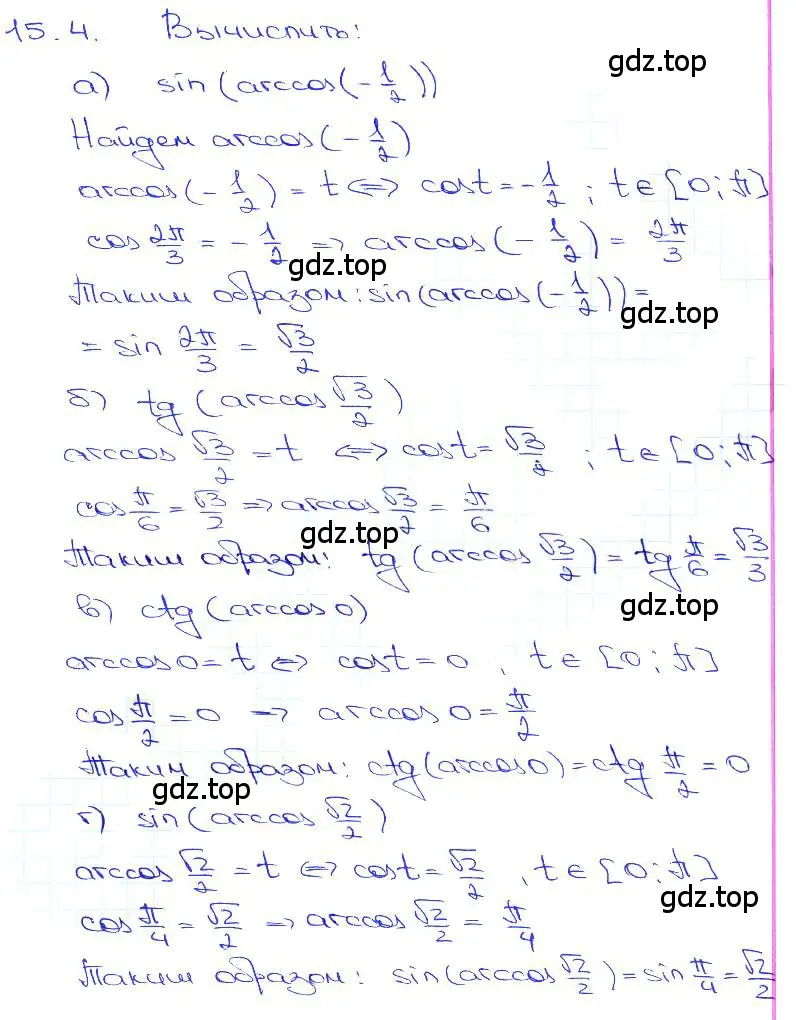 15.4. Вычислить:
gdz.top
а) sin(arccos(-1/2))
Найдем arccos(-1/2)
arccos(-1/2) = t <=> cos t = -1/2 ; t ∈ [0; π]
cos 2π/3 = -1/2 => arccos(-1/2) = 2π/3
gdz.top
Таким образом: sin(arccos(-1/2)) =
gdz.top
= sin 2π/3 = √3/2
б) tg(arccos √3/2)
arccos √3/2 = t <=> cos t = √3/2 ; t ∈ [0; π]
cos π/6 = √3/2 => arccos √3/2 = π/6
gdz.top
Таким образом: tg(arccos √3/2) = tg π/6 = √3/3
в) ctg(arccos 0)
gdz.top
arccos 0 = t <=> cos t = 0 , t ∈ [0; π]
cos π/2 = 0 => arccos 0 = π/2
Таким образом: ctg(arccos 0) = ctg π/2 = 0
gdz.top
г) sin(arccos √2/2)
arccos √2/2 = t <=> cos t = √2/2 , t ∈ [0; π]
gdz.top
cos π/4 = √2/2 => arccos √2/2 = π/4
Таким образом: sin(arccos √2/2) = sin π/4 = √2/2